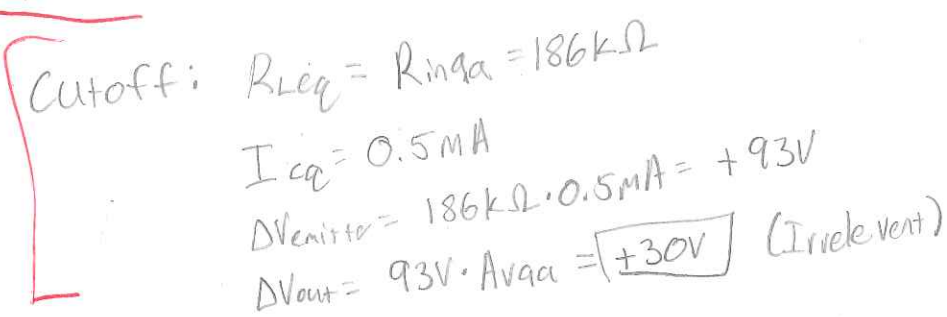 Cutoff: RLeq = Rinqa = 186kΩ
Icq = 0.5mA
ΔVemitter = 186kΩ · 0.5mA = +93V
ΔVout = 93V · Avqa = +30V (Irrelevent)